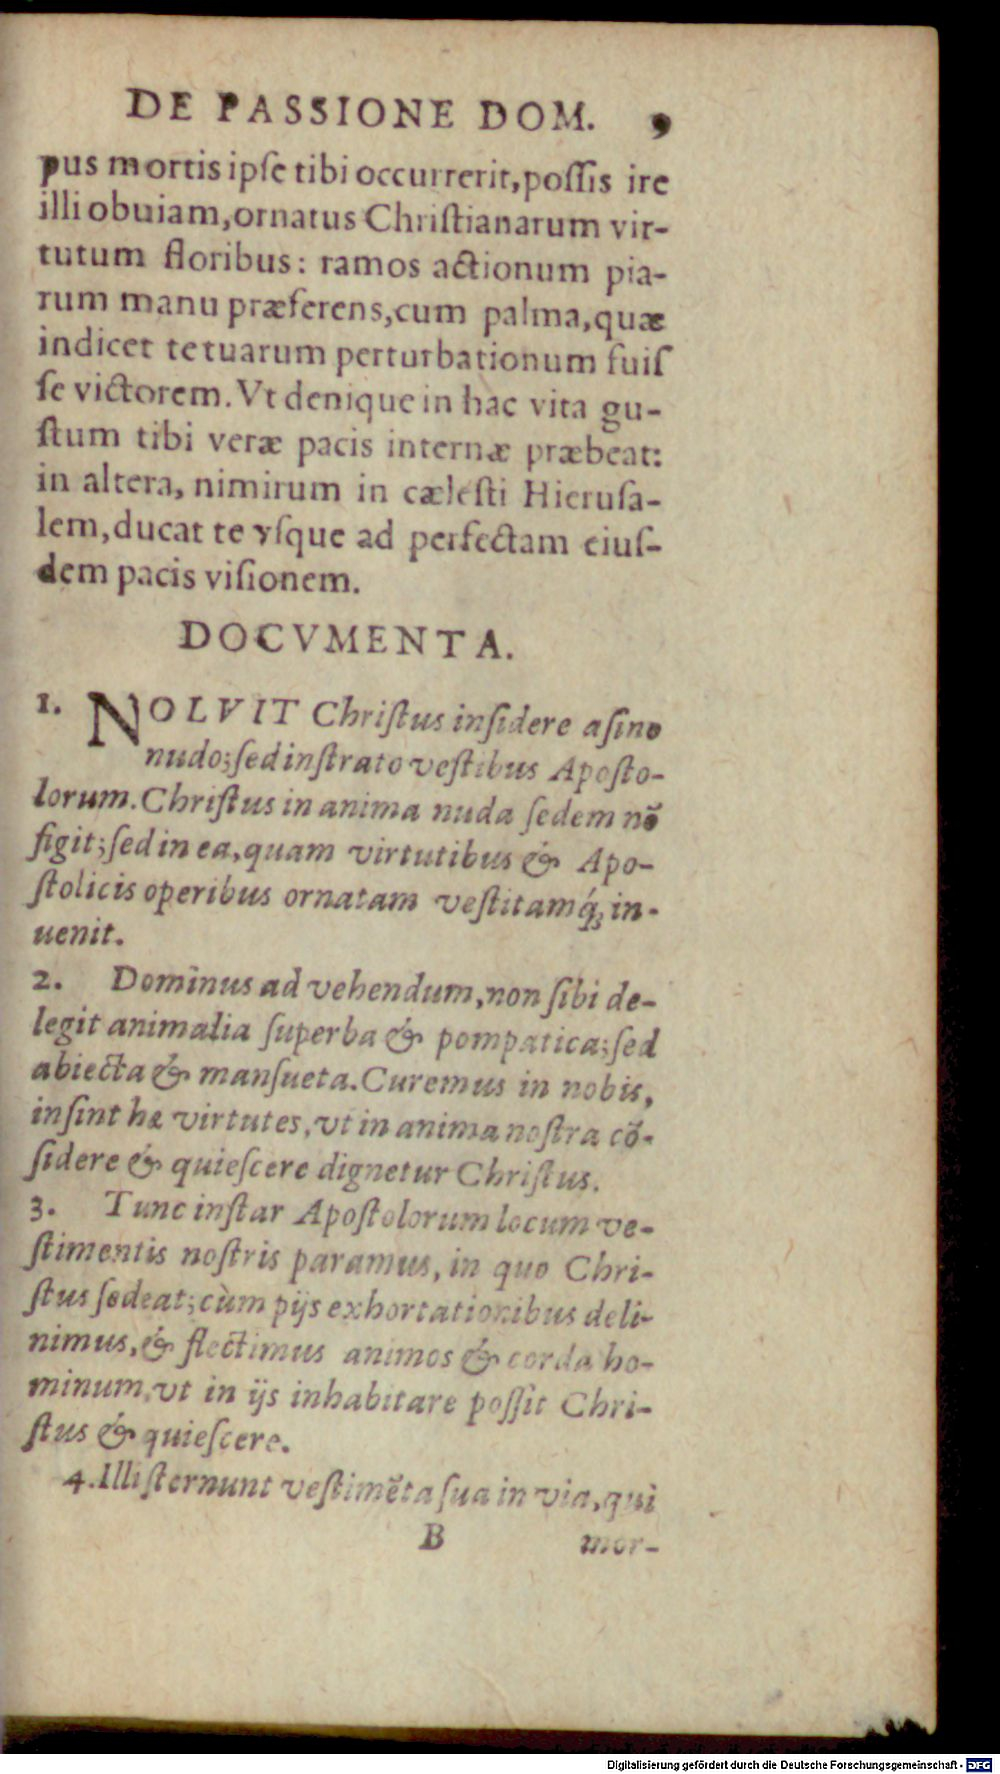 DE PASSIONE DOM. 9
pus mortis ipse tibi occurrerit, possis ire
illi obuiam, ornatus Christianarum vir-
tutum floribus: ramos actionum pia-
rum manu præferens, cum palma, quæ
indicet te tuarum perturbationum fuiſ
ſe victorem. Vt denique in hac vita gu-
ſtum tibi veræ pacis internæ præbeat:
in altera, nimirum in cæleſti Hieruſa-
lem, ducat te vſque ad perfectam eiuſ-
dem pacis viſionem.
DOCVMENTA.
1. NOLVIT Chriſtus inſidere aſino
nudo; ſed inſtrato veſtibus Apoſto-
lorum. Chriſtus in anima nuda ſedem nō
figit; ſed in ea, quam virtutibus & Apo-
ſtolicis operibus ornatam veſtitamq́; in-
uenit.
2. Dominus ad vehendum, non ſibi de-
legit animalia ſuperba & pompatica; ſed
abiecta & manſueta. Curemus in nobis,
inſint hæ virtutes, vt in anima noſtra cō-
ſidere & quieſcere dignetur Chriſtus.
3. Tunc inſtar Apoſtolorum locum ve-
ſtimentis noſtris paramus, in quo Chri-
ſtus ſedeat; cùm pijs exhortationibus deli-
nimus, & flectimus animos & corda ho-
minum, vt in ijs inhabitare poſſit Chri-
ſtus & quieſcere.
4. Illi ſternunt veſtimēta ſua in via, qui
B mor-
Digitalisierung gefördert durch die Deutsche Forschungsgemeinschaft - DFG